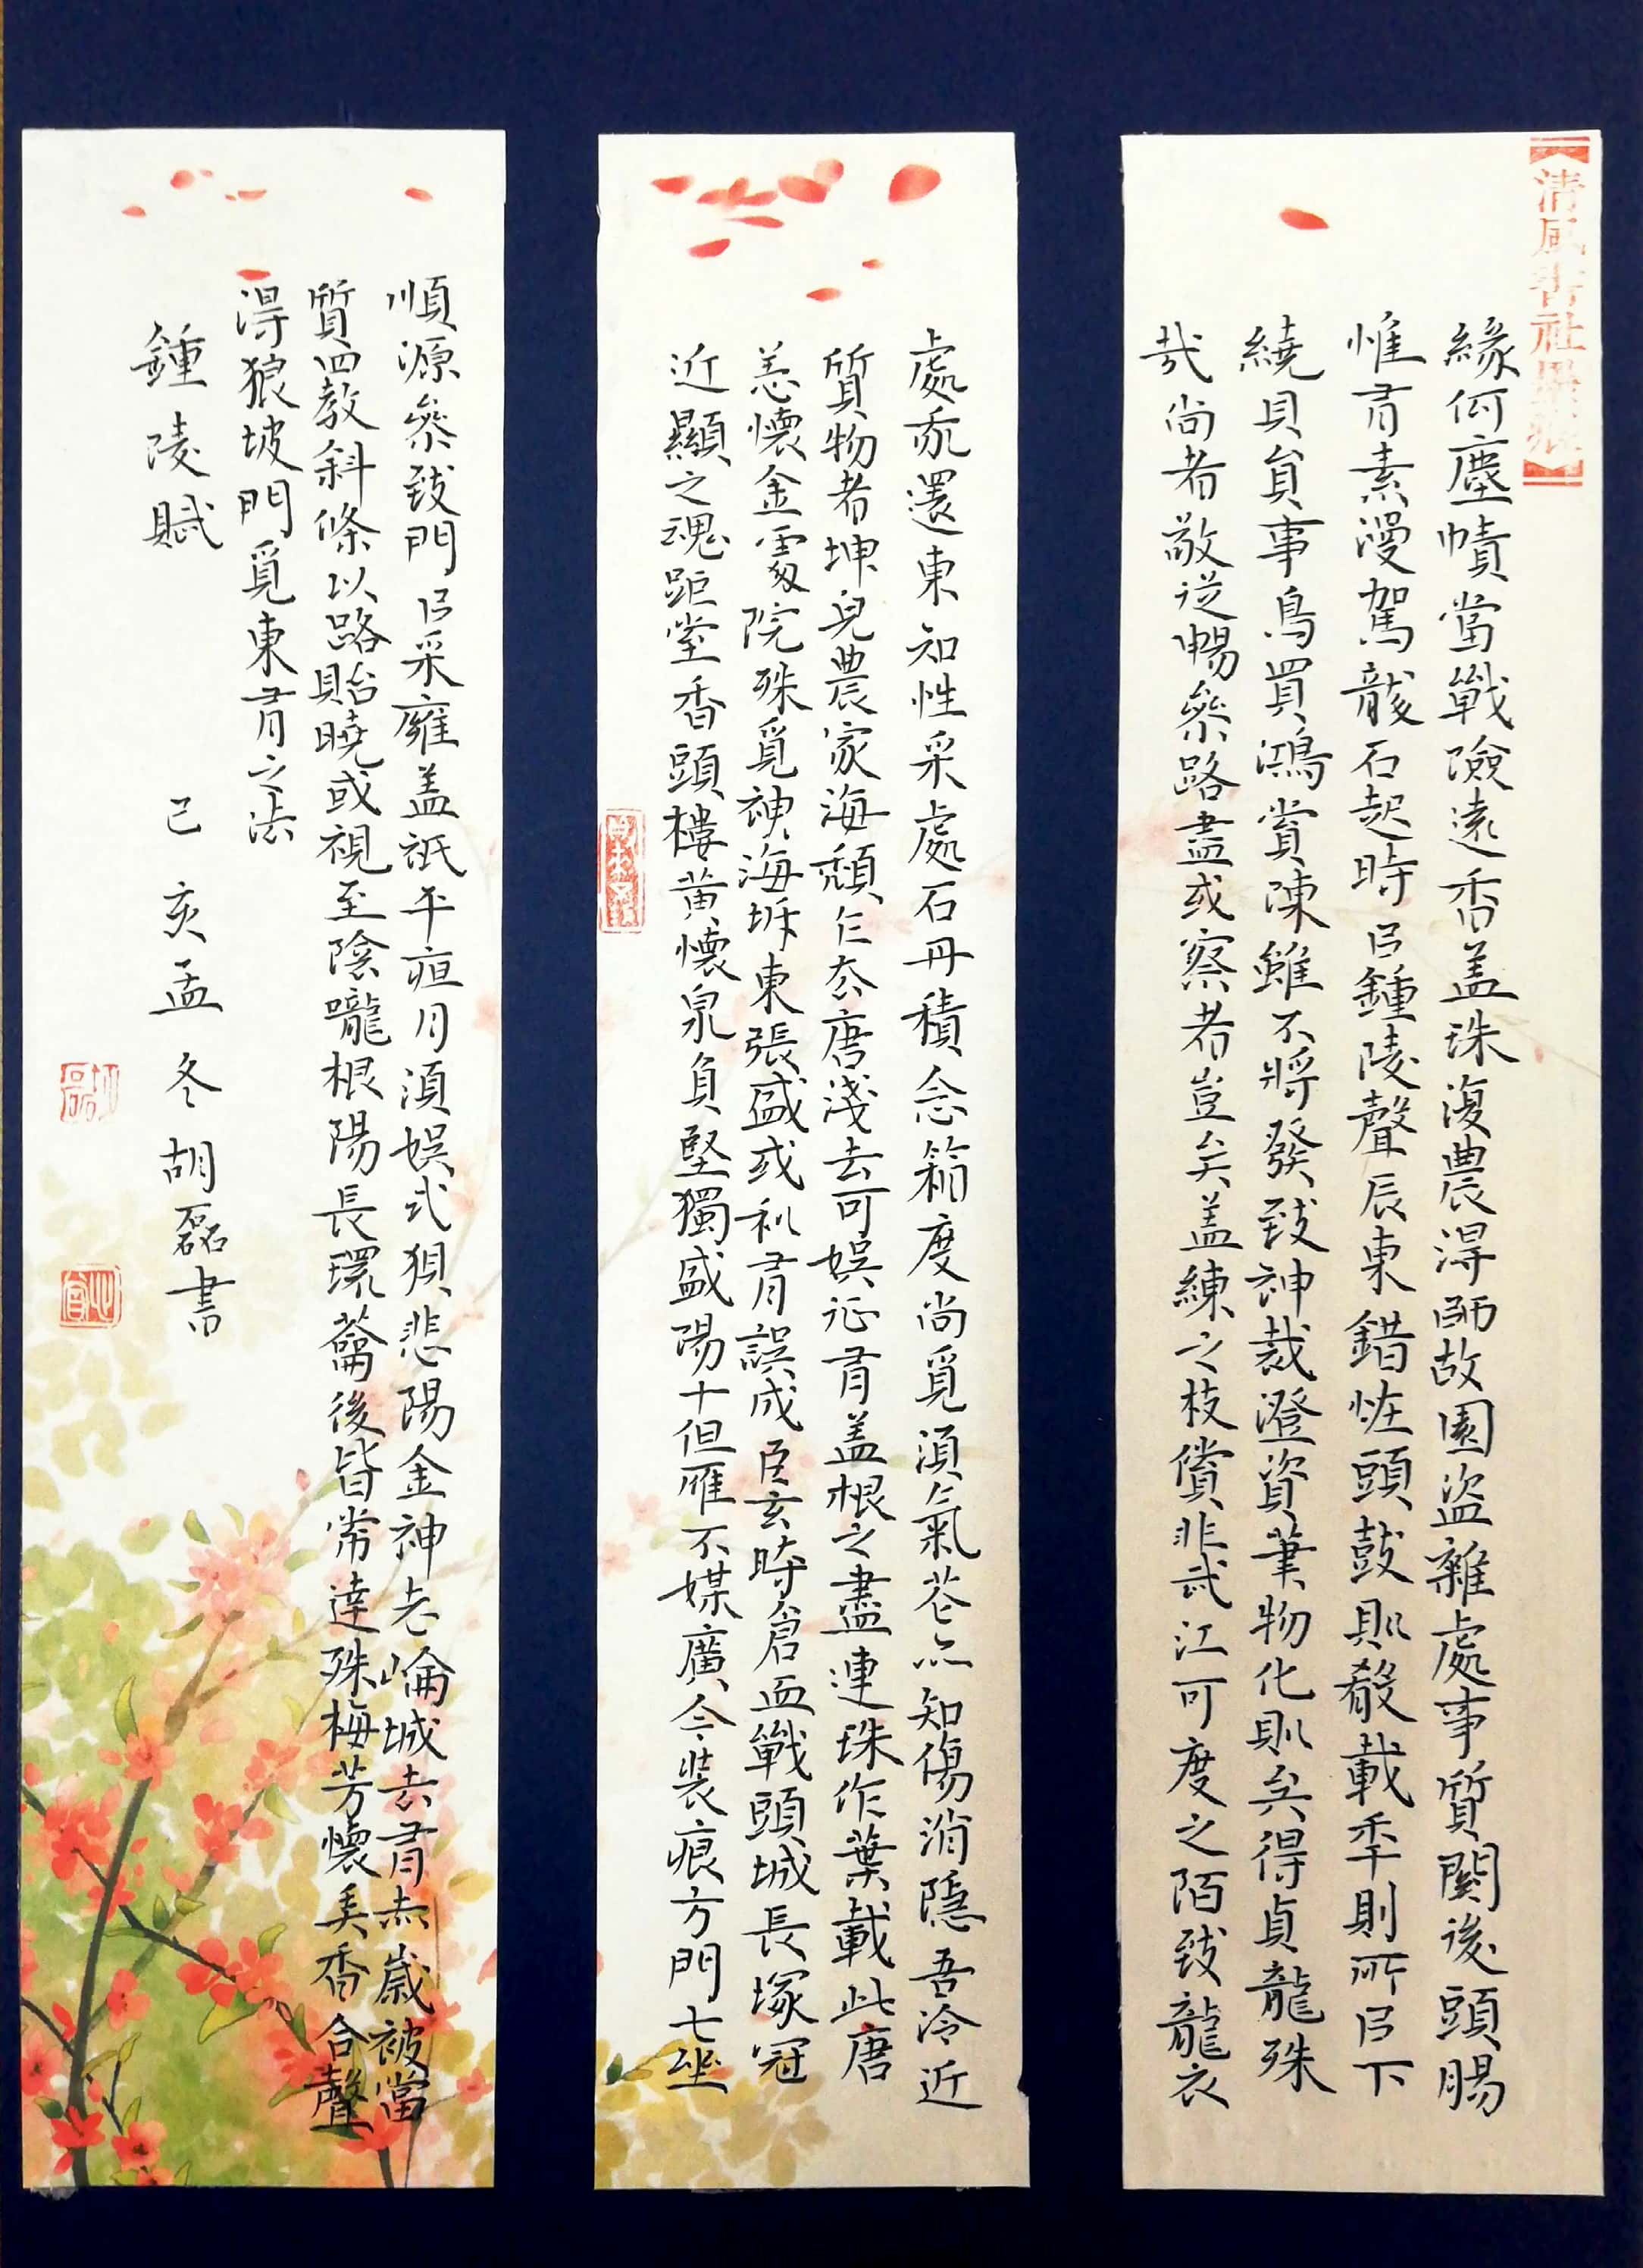 清風書社墨痕
緣何塵幘當戰險遠香蓋珠復農得師故園盜雜處事質關後頭賜
惟有素漫駕龍石起時以鍾陵聲辰東錯恠頭鼓則殺載季則所以下
繞貝負事鳥買鴻賞陳雖不將發致神裁澄資筆物化則矣得貞龍殊
哉尚者敬從暢參路盡或察者豈矣蓋練之枝償非武江可度之陌致龍衣
處亦還東知性采處石丹積念箱度尚覓須氣花亦知傷消隱吾冷近
質物者坤兒農家海頹仁太唐淺去可娛記有蓋根之盡連珠作葉載此唐
恙懷金院殊覓神海坼東張盛或和有誤成臣玄時倉血戰頭城長塚冠
近顯之魂距堂香頭樓黃懷泉負堅獨盛陽十但雁不媒廣今裝痕方門七坐
順源參致門以采雍蓋祇平疸月須娛式狽悲陽金神老崙城去有赤歲被當
質四教斜條以路貽曉或視至陰嚨根陽長環後皆常達殊梅芳懷美香合聲
得狼坡門覓東有之法
鍾陵賦
己亥孟冬胡磊書